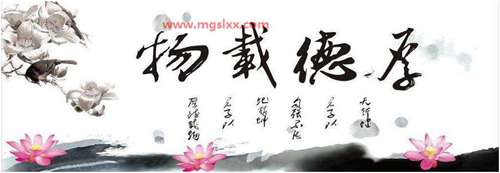 www.mgslxx.com
厚德載物
天行健
君子以
自強不息
地勢坤
君子以
厚德載物